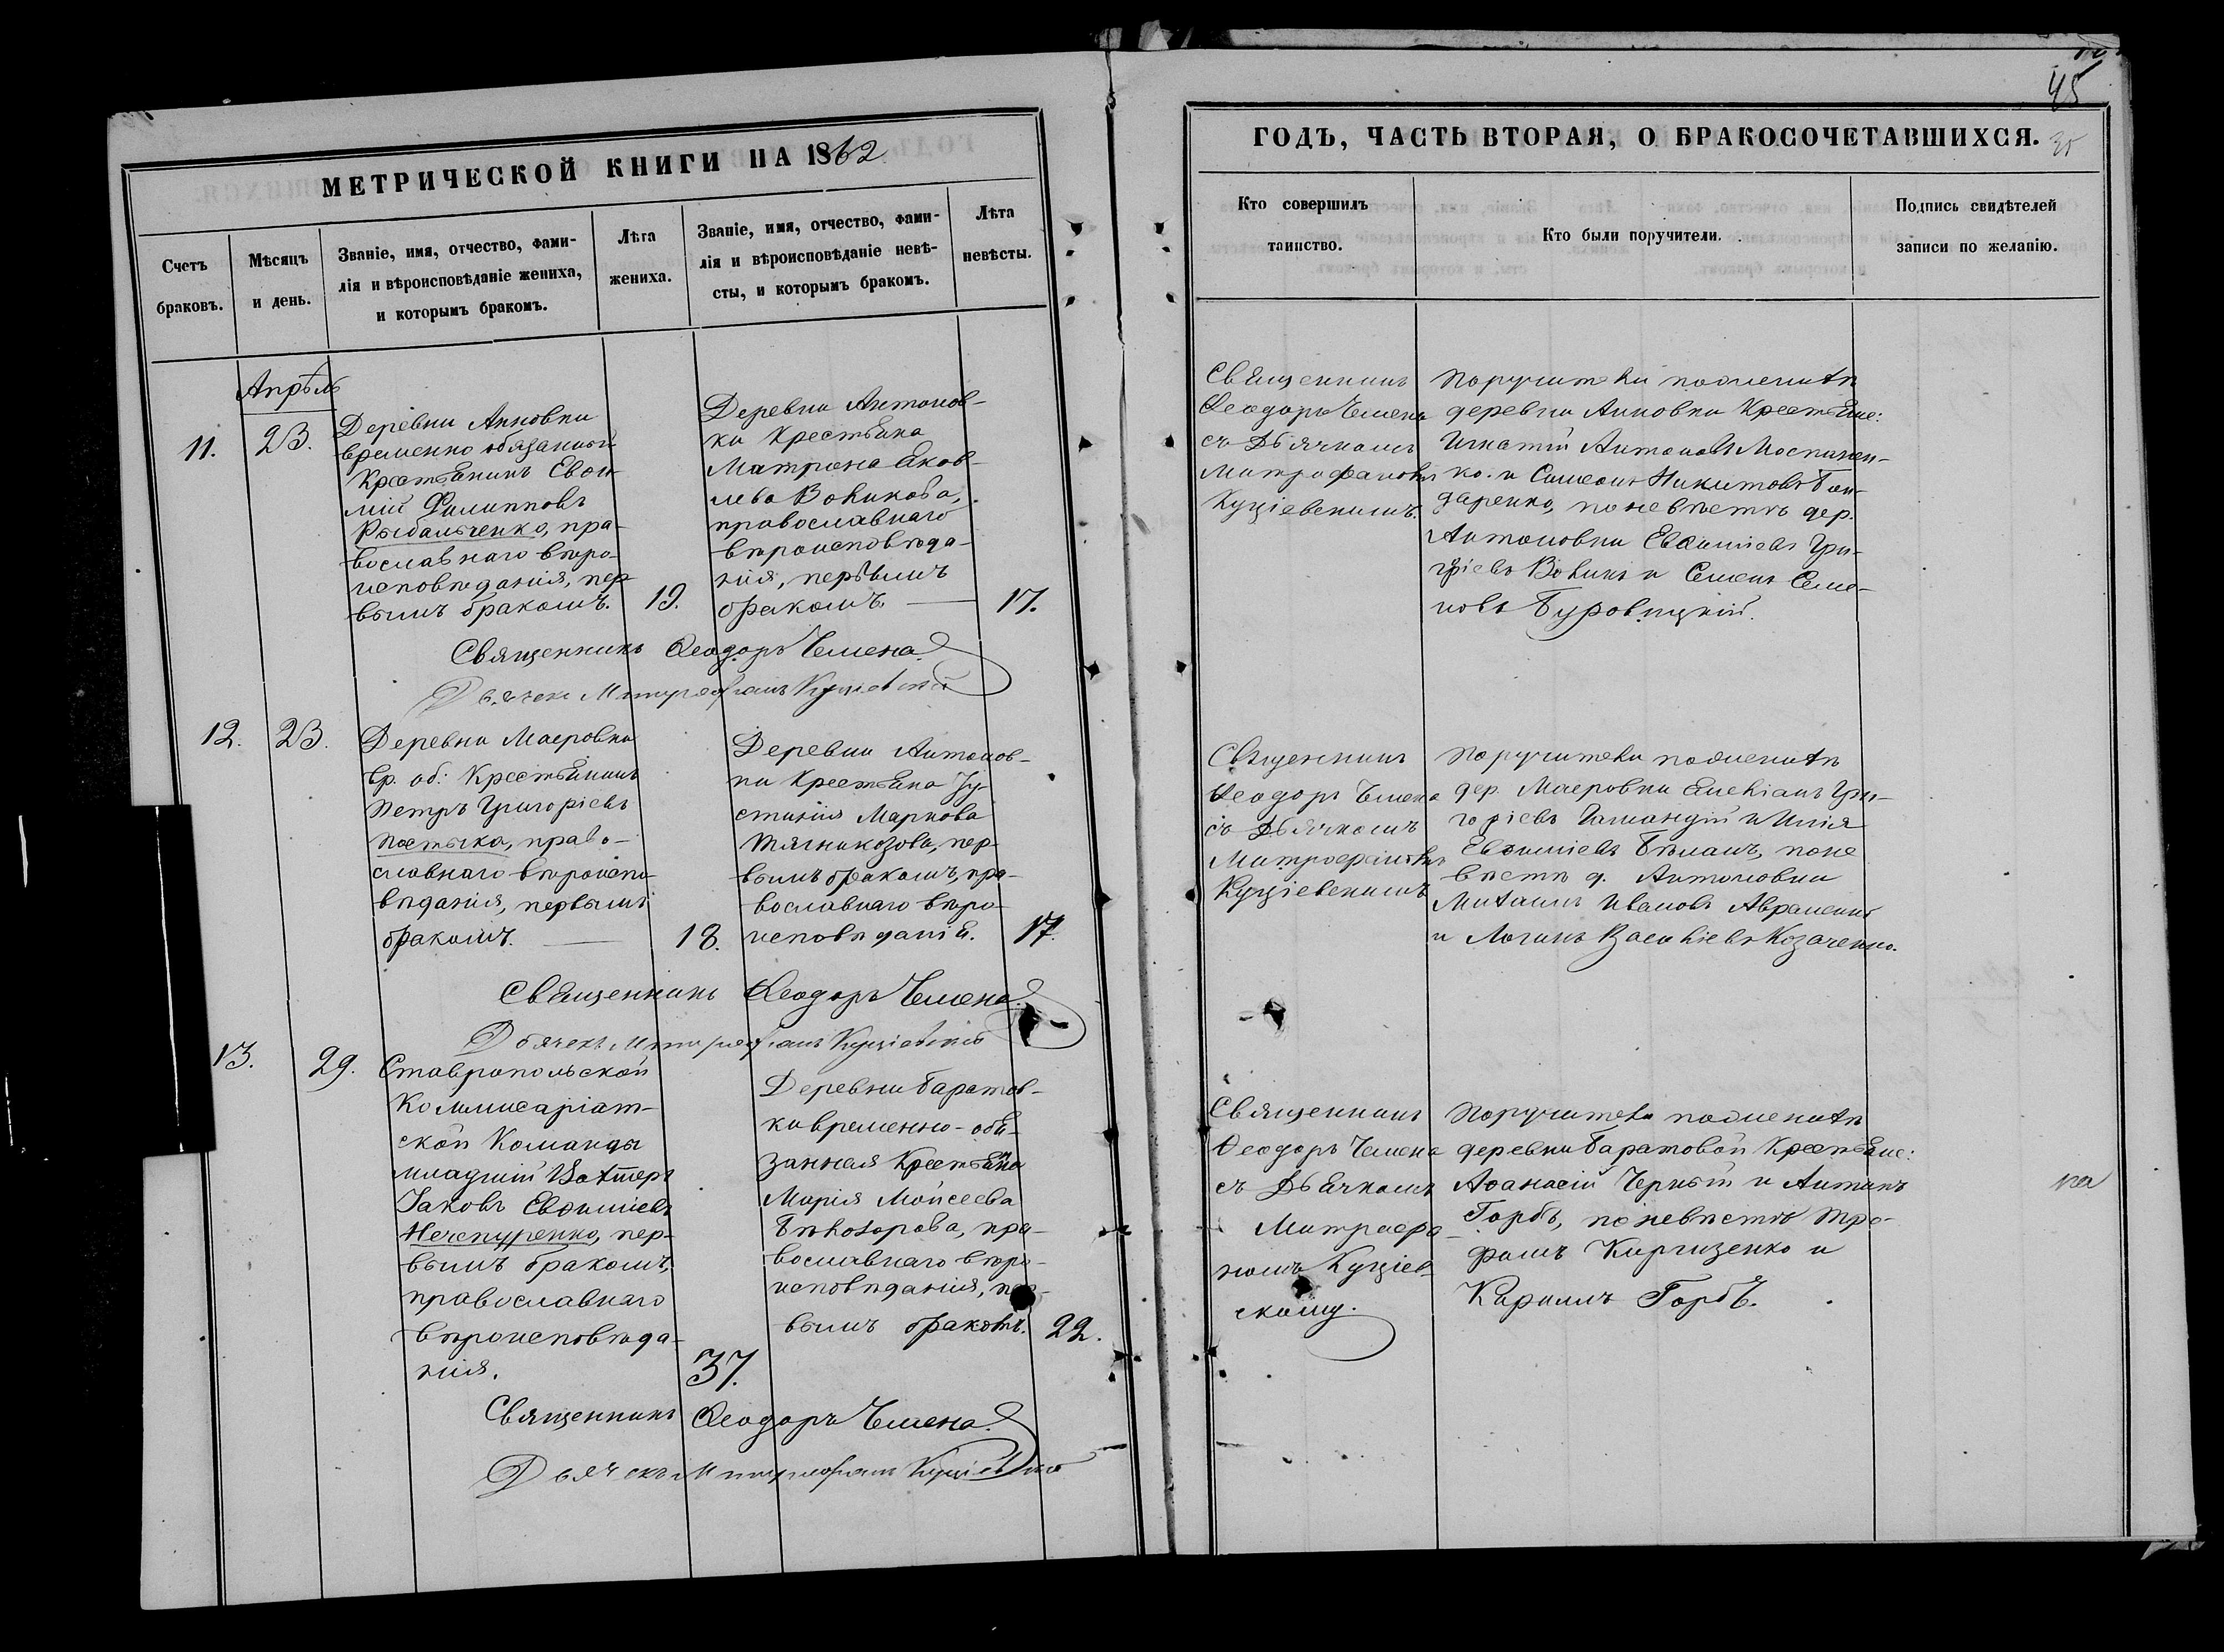 МЕТРИЧЕСКОЙ КНИГИ НА 1862
Счетъ браковъ.
Мѣсяцъ и день.
Званіе, имя, отчество, фами-
лія и вѣроисповѣданіе жениха,
и которымъ бракомъ.
Лѣта жениха.
Званіе, имя, отчество, фами-
лія и вѣроисповѣданіе невѣ-
сты, и которымъ бракомъ.
Лѣта невѣсты.
Апрѣль
11.
23.
Деревни Анновки
временно обязанный
Крестьянинъ Евѳи-
мій Филипповъ
Рыбальченко, пра-
вославнаго вѣро-
исповѣданія, пер-
вымъ бракомъ.
19.
Деревни Антонов-
ки Крестьянка
Матрона Яков-
лева Воликова,
православнаго
вѣроисповѣда-
нія, первымъ
бракомъ.
17.
Священникъ Ѳеодоръ Чемена
Дьячекъ Митрофанъ Куціевскій
12.
23.
Деревни Маеровки
вр. об: Крестьянинъ
Петръ Григоріевъ
Постыка, право-
славнаго вѣроиспо-
вѣданія, первымъ
бракомъ.
18.
Деревни Антонов-
ки Крестьянка Іу-
стинія Маркова
Тягникозова, пер-
вымъ бракомъ, пра-
вославнаго вѣро-
исповѣданія.
17.
Священникъ Ѳеодоръ Чемена
Дьячекъ Митрофанъ Куціевскій
13.
29.
Ставропольской
Коммисаріат-
ской Команды
младшій Вахтеръ
Іаковъ Евѳиміевъ
Нечепуренко, пер-
вымъ бракомъ,
православнаго
вѣроисповѣда-
нія.
37.
Деревни Баратов-
ки временно-обя-
занная Крестьянка
Марія Мойсеева
Бѣлозорова, пра-
вославнаго вѣро-
исповѣданія, пер-
вымъ бракомъ.
22.
Священникъ Ѳеодоръ Чемена
Дьячекъ Митрофанъ Куціевскій
45
ГОДЪ, ЧАСТЬ ВТОРАЯ, О БРАКОСОЧЕТАВШИХСЯ.
35
Кто совершилъ
таинство.
Кто были поручители.
Подпись свидѣтелей
записи по желанію.
Священникъ
Ѳеодоръ Чемена
съ Дьячкомъ
Митрофаномъ
Куціевскимъ.
Поручители по женихѣ
деревни Анновки Крестьяне:
Игнатій Антоновъ Моспанен-
ко. и Симеонъ Никитовъ Бон-
даренко, по невѣстѣ дер.
Антоновки Евѳимій Гри-
горіевъ Воликъ и Семенъ Семе-
новъ Буровицкій.
Священникъ
Ѳеодоръ Чемена
съ Дьячкомъ
Митрофаномъ
Куціевскимъ
Поручители по женихѣ
дер. Маеровки Емеліанъ Гри-
горіевъ и Илія
Евѳиміевъ Бѣланъ, по не
вѣстѣ д. Антоновки
Михаилъ Ивановъ Авраменко
и Логинъ Василіевъ Козаченко.
Священникъ
Ѳеодоръ Чемена
съ Дьячкомъ
Митрофа-
номъ Куціев-
скому.
Поручители по женихѣ
деревни Баратовой Крестьяне:
Аѳанасій Черный и Антонъ
Горбъ, по невѣстѣ Тро-
фимъ Киргизенко и
Кириллъ Горбъ.